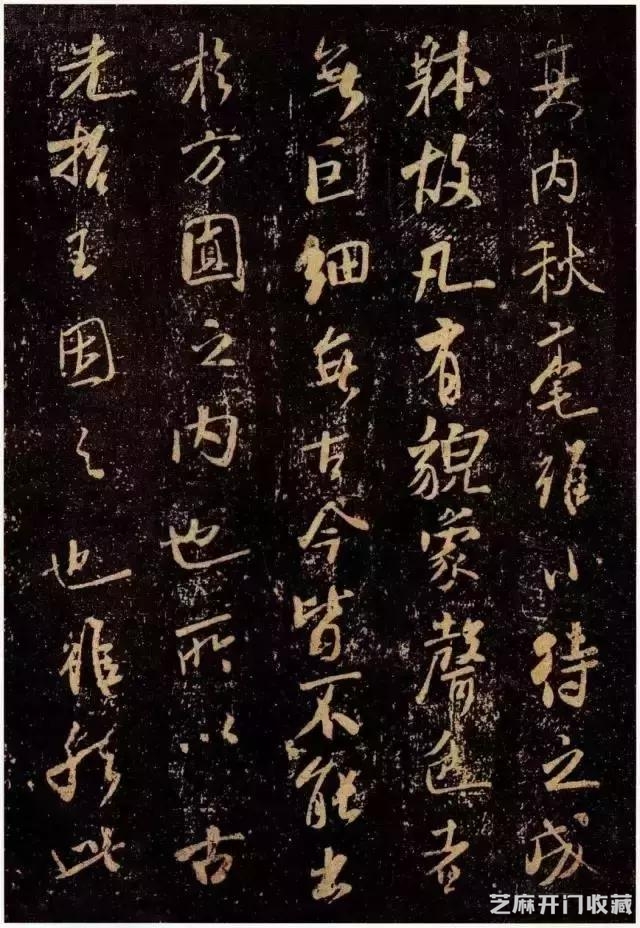 其内秋毫雖小待之成
躰故凡有貌象聲色者
無巨細無古今皆不能出
於方圓之内也所以古
先哲王因之也雖然此
芝麻开门收藏